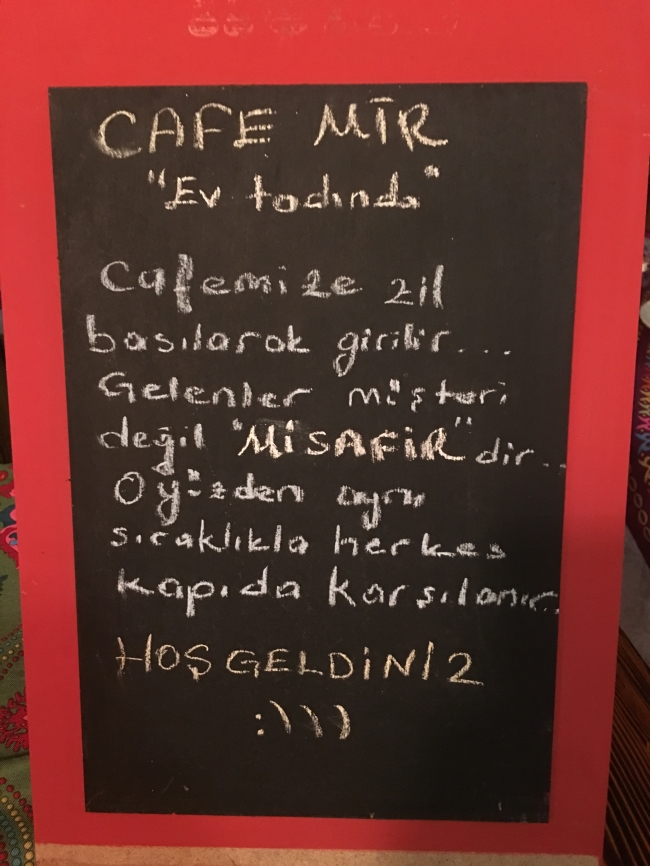 CAFE MİR
"Ev tadında"
Cafemize zil
basılarak girilir...
Gelenler müşteri
değil "MİSAFİR"dir...
O yüzden aynı
sıcaklıkla herkes
kapıda karşılanır..
HOŞGELDİNİZ
:)))